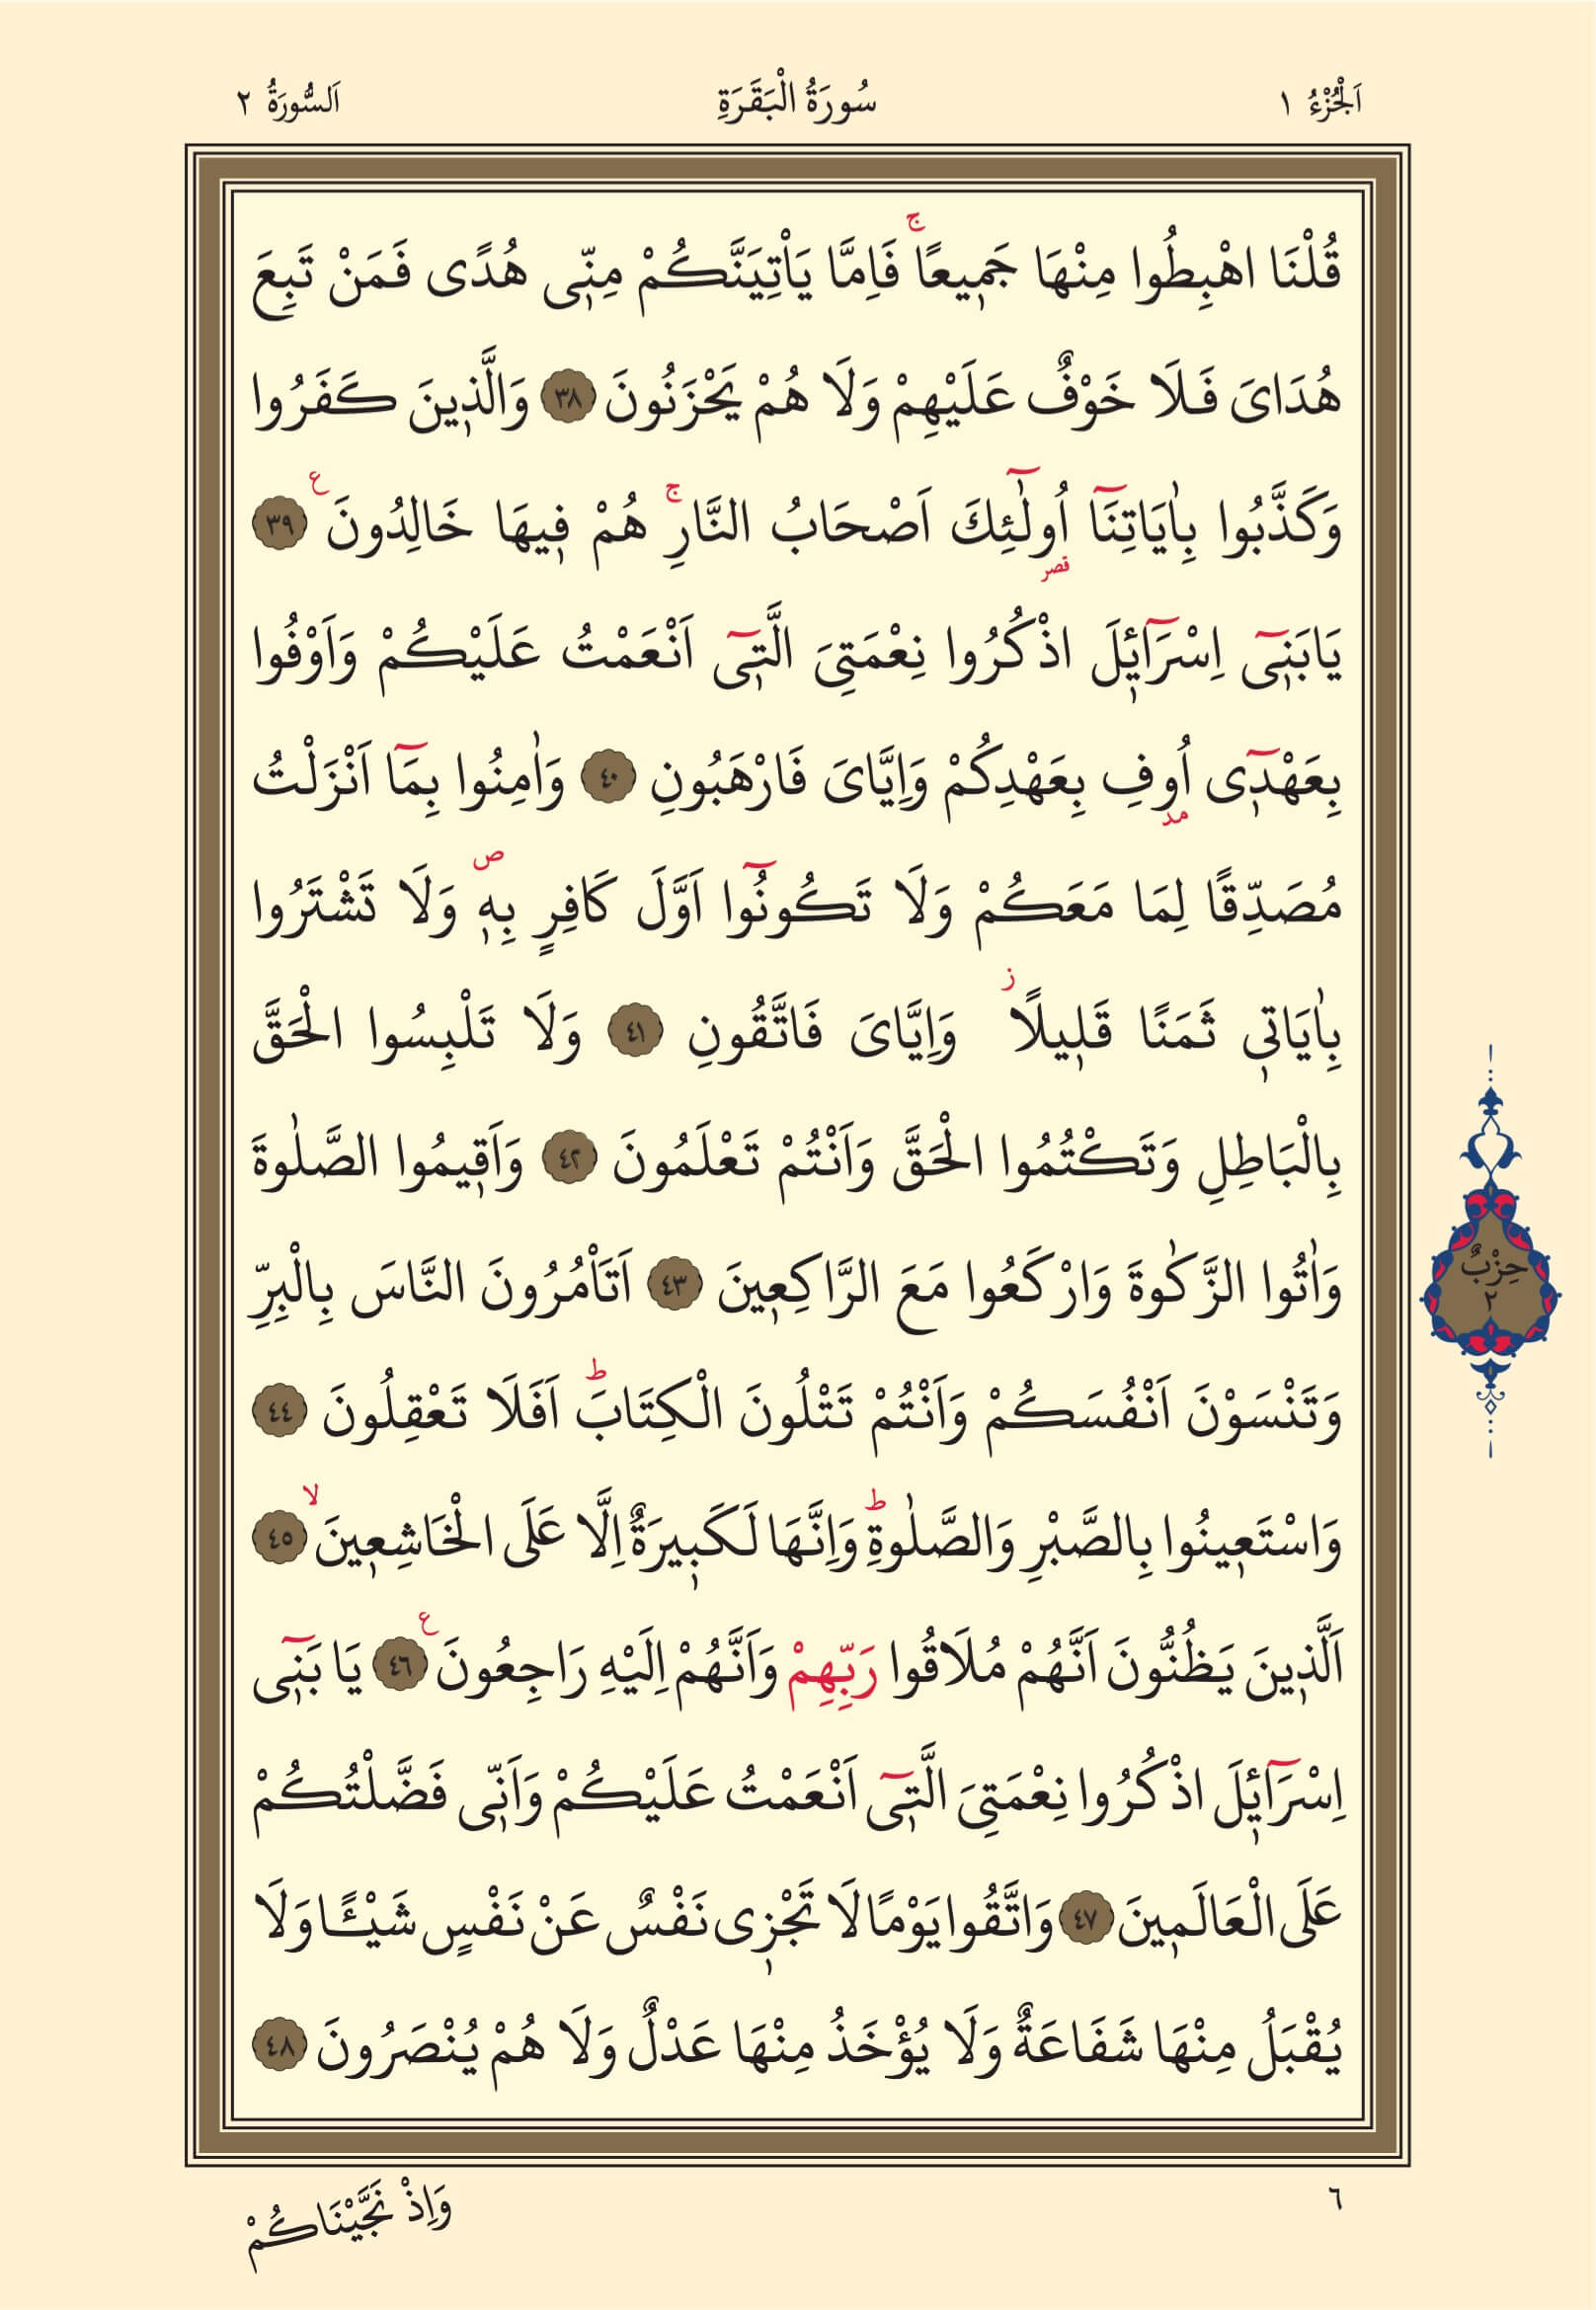 اَلْجُزْءُ ١
سُورَةُ الْبَقَرَةِ
اَلسُّورَةُ ٢
قُلْنَا اهْبِطُوا مِنْهَا جَمٖيعًاۚ فَاِمَّا يَاْتِيَنَّكُمْ مِنّٖى هُدًى فَمَنْ تَبِعَ
هُدَاىَ فَلَا خَوْفٌ عَلَيْهِمْ وَلَا هُمْ يَحْزَنُونَ ٣٨ وَالَّذٖينَ كَفَرُوا
وَكَذَّبُوا بِاٰيَاتِنَٓا اُو۬لٰٓئِكَ اَصْحَابُ النَّارِۚ هُمْ فٖيهَا خَالِدُونَ ع ٣٩
قصر
يَابَنٖٓى اِسْرَٓائٖلَ اذْكُرُوا نِعْمَتِىَ الَّتٖٓى اَنْعَمْتُ عَلَيْكُمْ وَاَوْفُوا
بِعَهْدٖٓى اُوفِ بِعَهْدِكُمْ وَاِيَّاىَ فَارْهَبُونِ ٤٠ وَاٰمِنُوا بِمَٓا اَنْزَلْتُ
مد
مُصَدِّقًا لِمَا مَعَكُمْ وَلَا تَكُونُٓوا اَوَّلَ كَافِرٍ بِهٖ ص وَلَا تَشْتَرُوا
بِاٰيَاتٖى ثَمَنًا قَلٖيلًا ز وَاِيَّاىَ فَاتَّقُونِ ٤١ وَلَا تَلْبِسُوا الْحَقَّ
بِالْبَاطِلِ وَتَكْتُمُوا الْحَقَّ وَاَنْتُمْ تَعْلَمُونَ ٤٢ وَاَقٖيمُوا الصَّلٰوةَ
وَاٰتُوا الزَّكٰوةَ وَارْكَعُوا مَعَ الرَّاكِعٖينَ ٤٣ اَتَاْمُرُونَ النَّاسَ بِالْبِرِّ
وَتَنْسَوْنَ اَنْفُسَكُمْ وَاَنْتُمْ تَتْلُونَ الْكِتَابَؕ اَفَلَا تَعْقِلُونَ ٤٤
وَاسْتَعٖينُوا بِالصَّبْرِ وَالصَّلٰوةِؕ وَاِنَّهَا لَكَبٖيرَةٌ اِلَّا عَلَى الْخَاشِعٖينَۙ ٤٥
اَلَّذٖينَ يَظُنُّونَ اَنَّهُمْ مُلَاقُوا رَبِّهِمْ وَاَنَّهُمْ اِلَيْهِ رَاجِعُونَ ع ٤٦ يَا بَنٖٓى
اِسْرَٓائٖلَ اذْكُرُوا نِعْمَتِىَ الَّتٖٓى اَنْعَمْتُ عَلَيْكُمْ وَاَنّٖى فَضَّلْتُكُمْ
عَلَى الْعَالَمٖينَ ٤٧ وَاتَّقُوا يَوْمًا لَا تَجْزٖى نَفْسٌ عَنْ نَفْسٍ شَيْـًٔا وَلَا
يُقْبَلُ مِنْهَا شَفَاعَةٌ وَلَا يُؤْخَذُ مِنْهَا عَدْلٌ وَلَا هُمْ يُنْصَرُونَ ٤٨
حِزْبٌ
٢
٦
وَاِذْ نَجَّيْنَاكُمْ